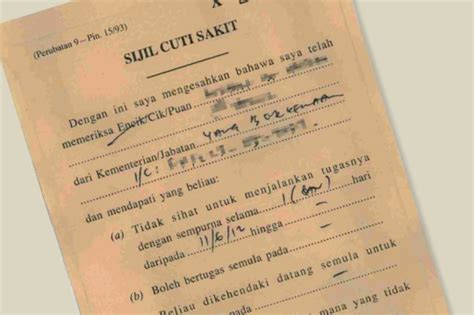 (Perubatan 9—Pin. 15/93)
SIJIL CUTI SAKIT
Dengan ini saya mengesahkan bahawa saya telah
memeriksa Encik/Cik/Puan
dari Kementerian/Jabatan YANG BERKENAAN
I/C:
dan mendapati yang beliau:
(a) Tidak sihat untuk menjalankan tugasnya
dengan sempurna selama 1 hari
daripada 11/6/12 hingga
(b) Boleh bertugas semula pada
Beliau dikehendaki datang semula untuk
mana yang tidak